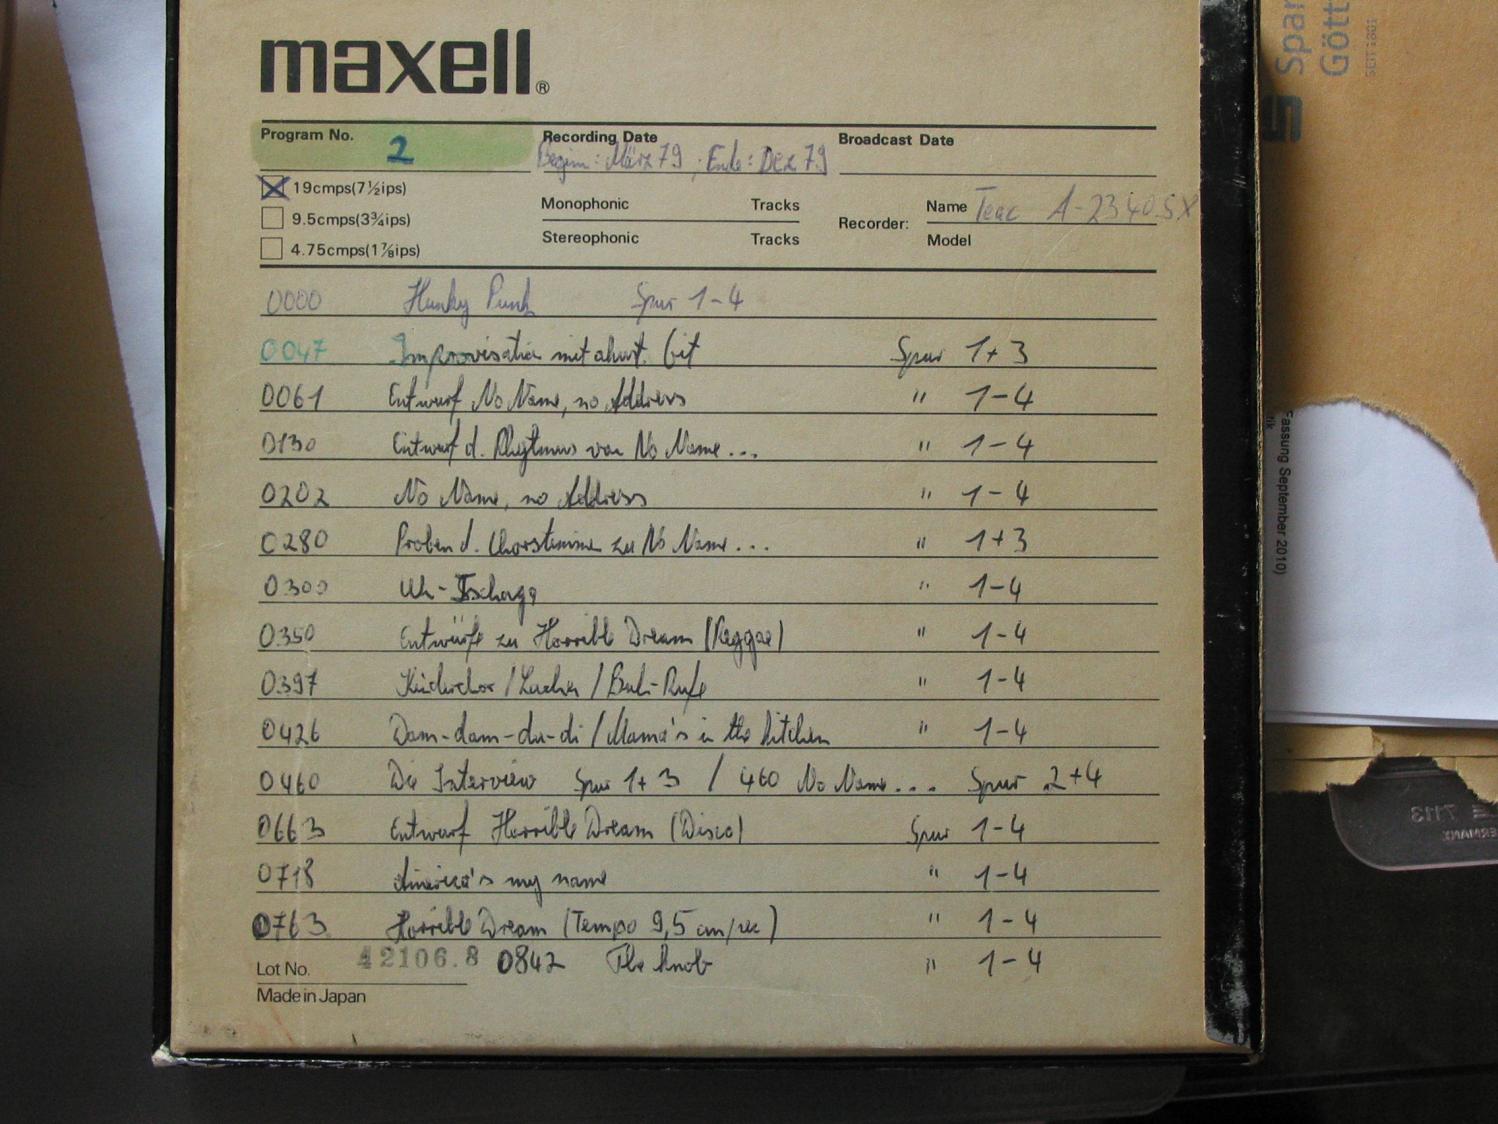 maxell®
Program No. 2 Recording Date Broadcast Date
Beginn: März 79 ; Ende: Dez 79
19cmps(7½ips)
9.5cmps(3¾ips)
4.75cmps(1⅞ips)
Monophonic Tracks
Stereophonic Tracks
Recorder: Name Teac A-2340SX
Model
0000 Hunky Punk Spur 1-4
0047 Improvisation mit Spur 1+3
0061 Entwurf No Name, no Address " 1-4
0130 Entwurf d. Rhytmus von No Name... " 1-4
0202 No Name, no Address " 1-4
0280 Proben d. Chorstimme zu No Name... " 1+3
0300 Uh-Tschaga " 1-4
0350 Entwürfe zu Horrible Dream (Reggae) " 1-4
0397 Kinderchor / Lachen / Buh-Rufe " 1-4
0426 Dam-dam-du-di / Mama's in the kitchen " 1-4
0460 Die Interview Spur 1+3 / 460 No Name... Spur 2+4
0663 Entwurf Horrible Dream (Disco) Spur 1-4
0718 America's my name " 1-4
0763 Horrible Dream (Tempo 9,5 cm/sec) " 1-4
Lot No. 42106.8 0842 The knob " 1-4
Made in Japan
Spar
Gött
SEIT 1801
Fassung September 2010)
E 7113